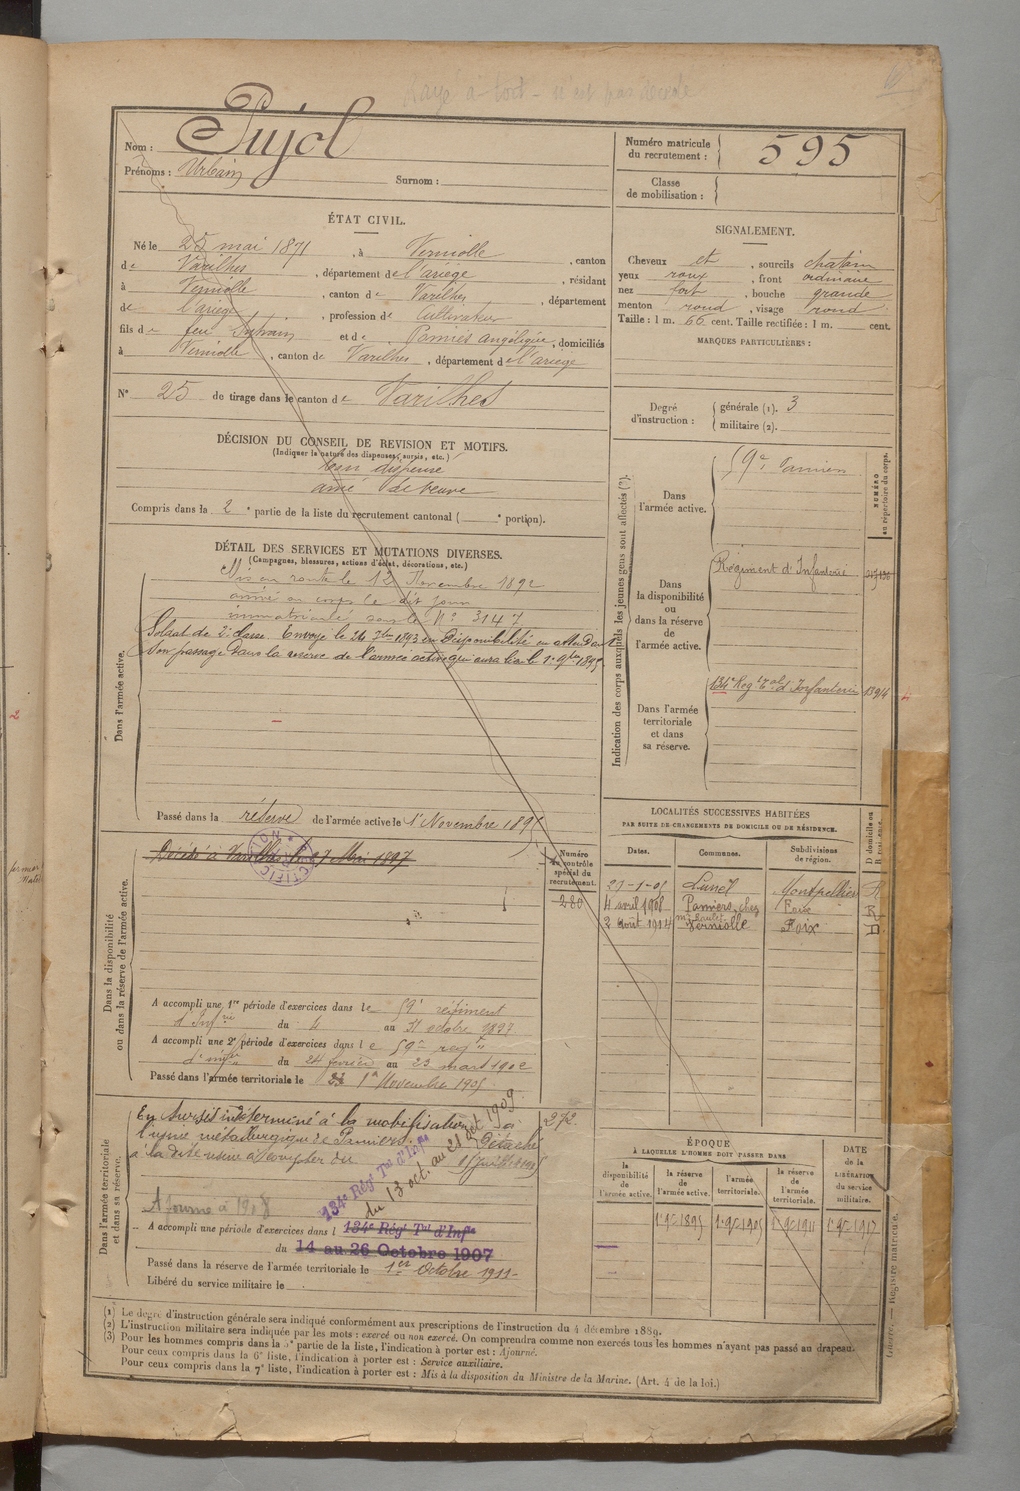 Rayé à tort - n'est pas décédé
Nom : Pujol
Prénoms : Urbain
Surnom :
Numéro matricule du recrutement : 595
Classe de mobilisation :
ÉTAT CIVIL.
Né le 25 mai 1871, à Verniolle, canton
de Varilhes, département de l'ariège, résidant
à Verniolle, canton de Varilhes, département
de l'ariège, profession de Cultivateur
fils de feu Sylvain et de Pamiés angélique, domiciliés
à Verniolle, canton de Varilhes, département de l'ariège
N° 25 de tirage dans le canton de Varilhes
SIGNALEMENT.
Cheveux et, sourcils chatain
yeux roux, front ordinaire
nez fort, bouche grande
menton rond, visage rond
Taille : 1 m. 66 cent. Taille rectifiée : 1 m. cent.
MARQUES PARTICULIÈRES :
Degré d'instruction : générale (1). 3
militaire (2).
DÉCISION DU CONSEIL DE REVISION ET MOTIFS.
(Indiquer la nature des dispenses, sursis, etc.)
bon dispensé
ainé de veuve
Compris dans la 2e partie de la liste du recrutement cantonal ( e portion).
DÉTAIL DES SERVICES ET MUTATIONS DIVERSES.
(Campagnes, blessures, actions d'éclat, décorations, etc.)
Dans l'armée active.
Mis en route le 12 Novembre 1892
arrivé au corps le dit jour
immatriculé sous le N° 3147
Soldat de 2e classe. Envoyé le 24 7bre 1893 en Disponibilité en attendant
son passage dans la réserve de l'armée active qui aura lieu le 1er 9bre 1895
Passé dans la réserve de l'armée active le 1er Novembre 1895
Indication des corps auxquels les jeunes gens sont affectés (3).
NUMÉRO au répertoire du corps.
Dans l'armée active.
59e Pamiers
Dans la disponibilité ou dans la réserve de l'armée active.
Régiment d'Infanterie
Dans l'armée territoriale et dans sa réserve.
134e Regt Tal d'Infanterie 1394
Dans la disponibilité ou dans la réserve de l'armée active.
Décédé à Varilhes le 7 Mai 1897
RECTIFICATION
Numéro au contrôle spécial du recrutement.
280
A accompli une 1re période d'exercices dans le 59e régiment
d'Infrie du 4 au 31 octobre 1897
A accompli une 2e période d'exercices dans le 59e regt
d'infie du 24 février au 23 mars 1902
Passé dans l'armée territoriale le 1er Novembre 1905
LOCALITÉS SUCCESSIVES HABITÉES
PAR SUITE DE CHANGEMENTS DE DOMICILE OU DE RÉSIDENCE.
Dates. Communes. Subdivisions de région. D domicile ou R résidence.
27-1-05 Lunel Montpellier R
4 avril 1908 Pamiers, chez Foix R
2 Août 1914 Verniolle Foix D
Dans l'armée territoriale et dans sa réserve.
En Sursis indéterminé à la mobilisation 272
l'usine métallurgique de Pamiers. Détaché
à la dite usine à compter du 1er Juillet
134e Régt Tal d'Infie
du 13 oct. au 21 oct 1909
Ajourné à 1908
A accompli une période d'exercices dans l 134e Régt Tal d'Infie
du 14 au 26 Octobre 1907
Passé dans la réserve de l'armée territoriale le 1er Octobre 1911
Libéré du service militaire le
ÉPOQUE
À LAQUELLE L'HOMME DOIT PASSER DANS
la disponibilité de l'armée active. la réserve de l'armée active. l'armée territoriale. la réserve de l'armée territoriale. DATE de la LIBÉRATION du service militaire.
1er 9bre 1895 1er 9bre 1905 1er 9bre 1911 1er 9bre 1917
Guerre. — Registre matricule.
(1) Le degré d'instruction générale sera indiqué conformément aux prescriptions de l'instruction du 4 décembre 1889.
(2) L'instruction militaire sera indiquée par les mots : exercé ou non exercé. On comprendra comme non exercés tous les hommes n'ayant pas passé au drapeau.
(3) Pour les hommes compris dans la 5e partie de la liste, l'indication à porter est : Ajourné.
Pour ceux compris dans la 6e liste, l'indication à porter est : Service auxiliaire.
Pour ceux compris dans la 7e liste, l'indication à porter est : Mis à la disposition du Ministre de la Marine. (Art. 4 de la loi.)